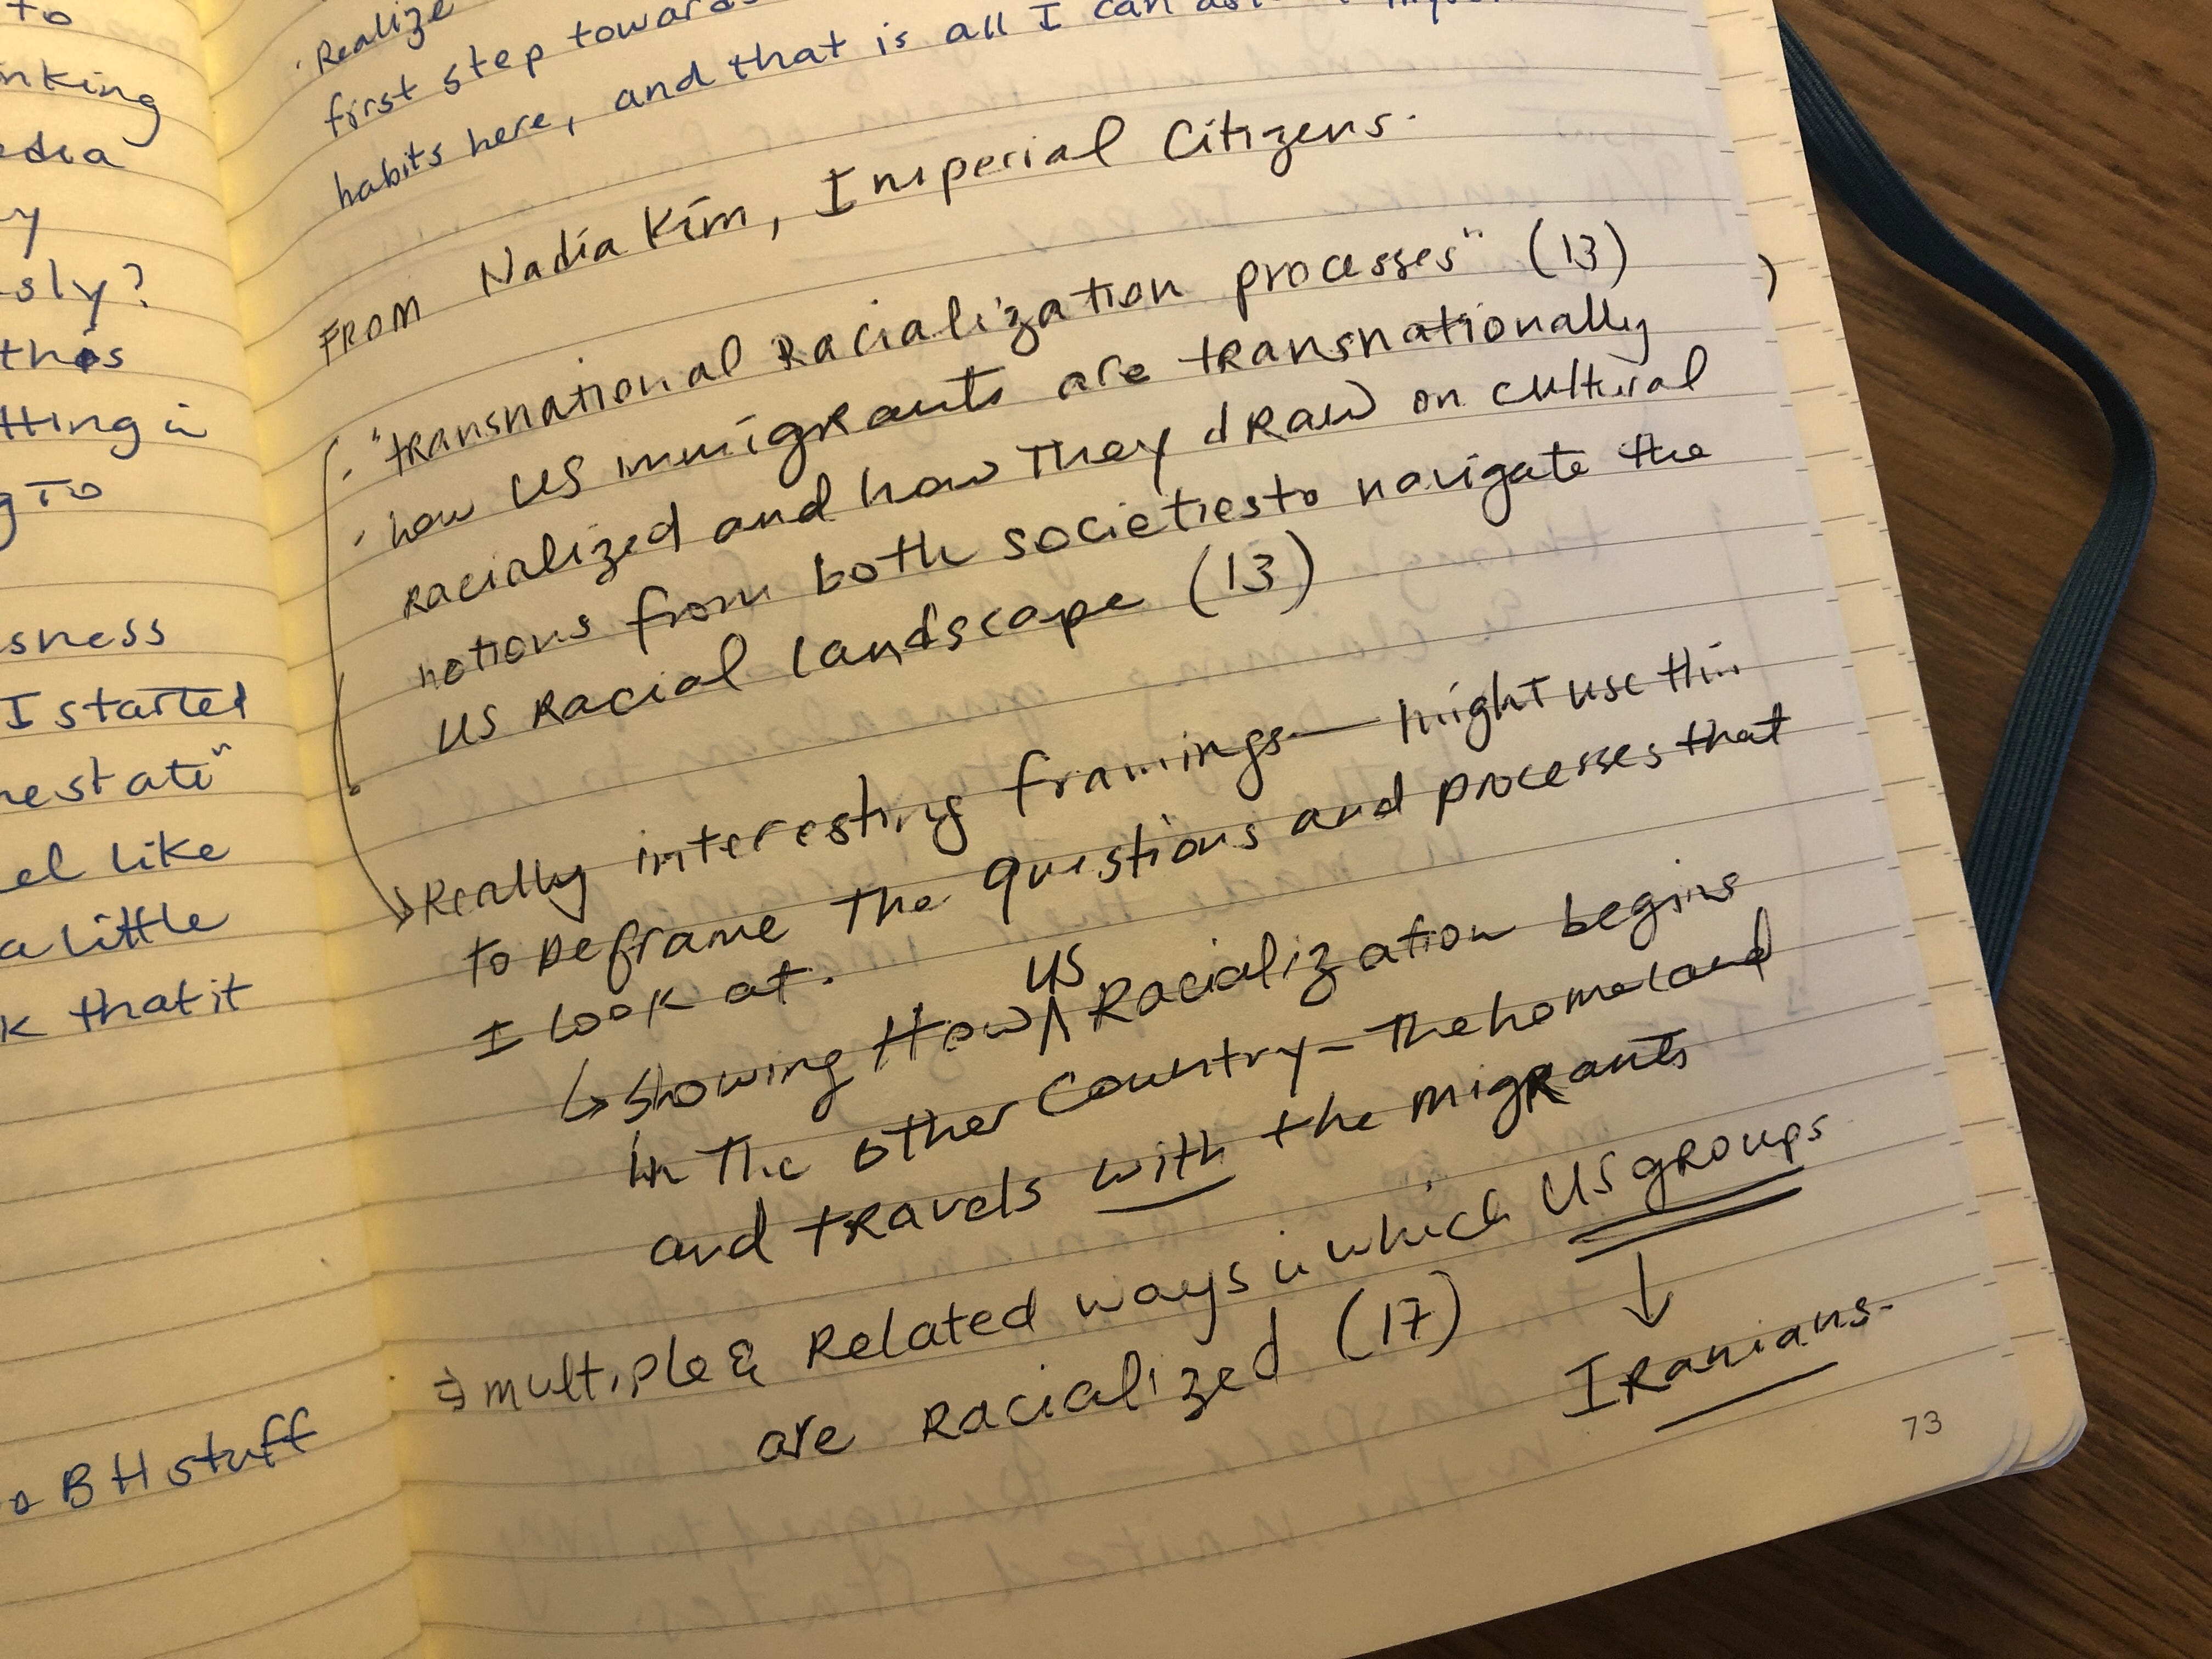 to
nking
edia
y
sly?
this
tting in
g to
sness
I started
nestate"
el like
a little
k that it
BH stuff
· Realize
first step towards
habits here, and that is all I can
FROM Nadia Kim, Imperial Citizens.
· "transnational Racialization processes" (13)
· how US immigrants are transnationally
racialized and how they draw on cultural
notions from both societies to navigate the
US Racial landscape (13)
→ Really interesting framings — might use this
to Reframe the questions and processes that
I look at.
↳ showing How US Racialization begins
in the other country – the homeland
and travels with the migrants
⇒ multiple & Related ways in which US groups
are racialized (17)
↓
Iranians.
73